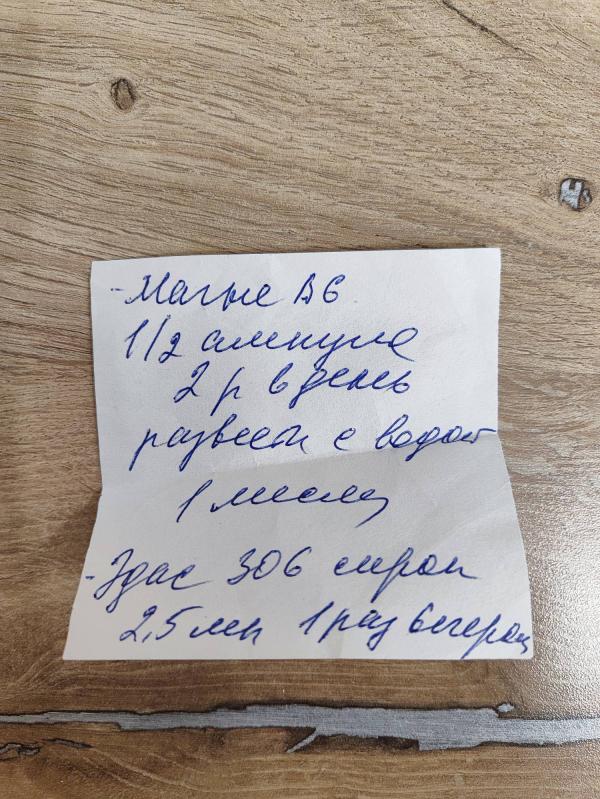 - Магне В6
1/2 ампуле
2 р в день
развести с водой
1 месяц
- Эдас 306 сироп
2,5 мл 1 раз вечером